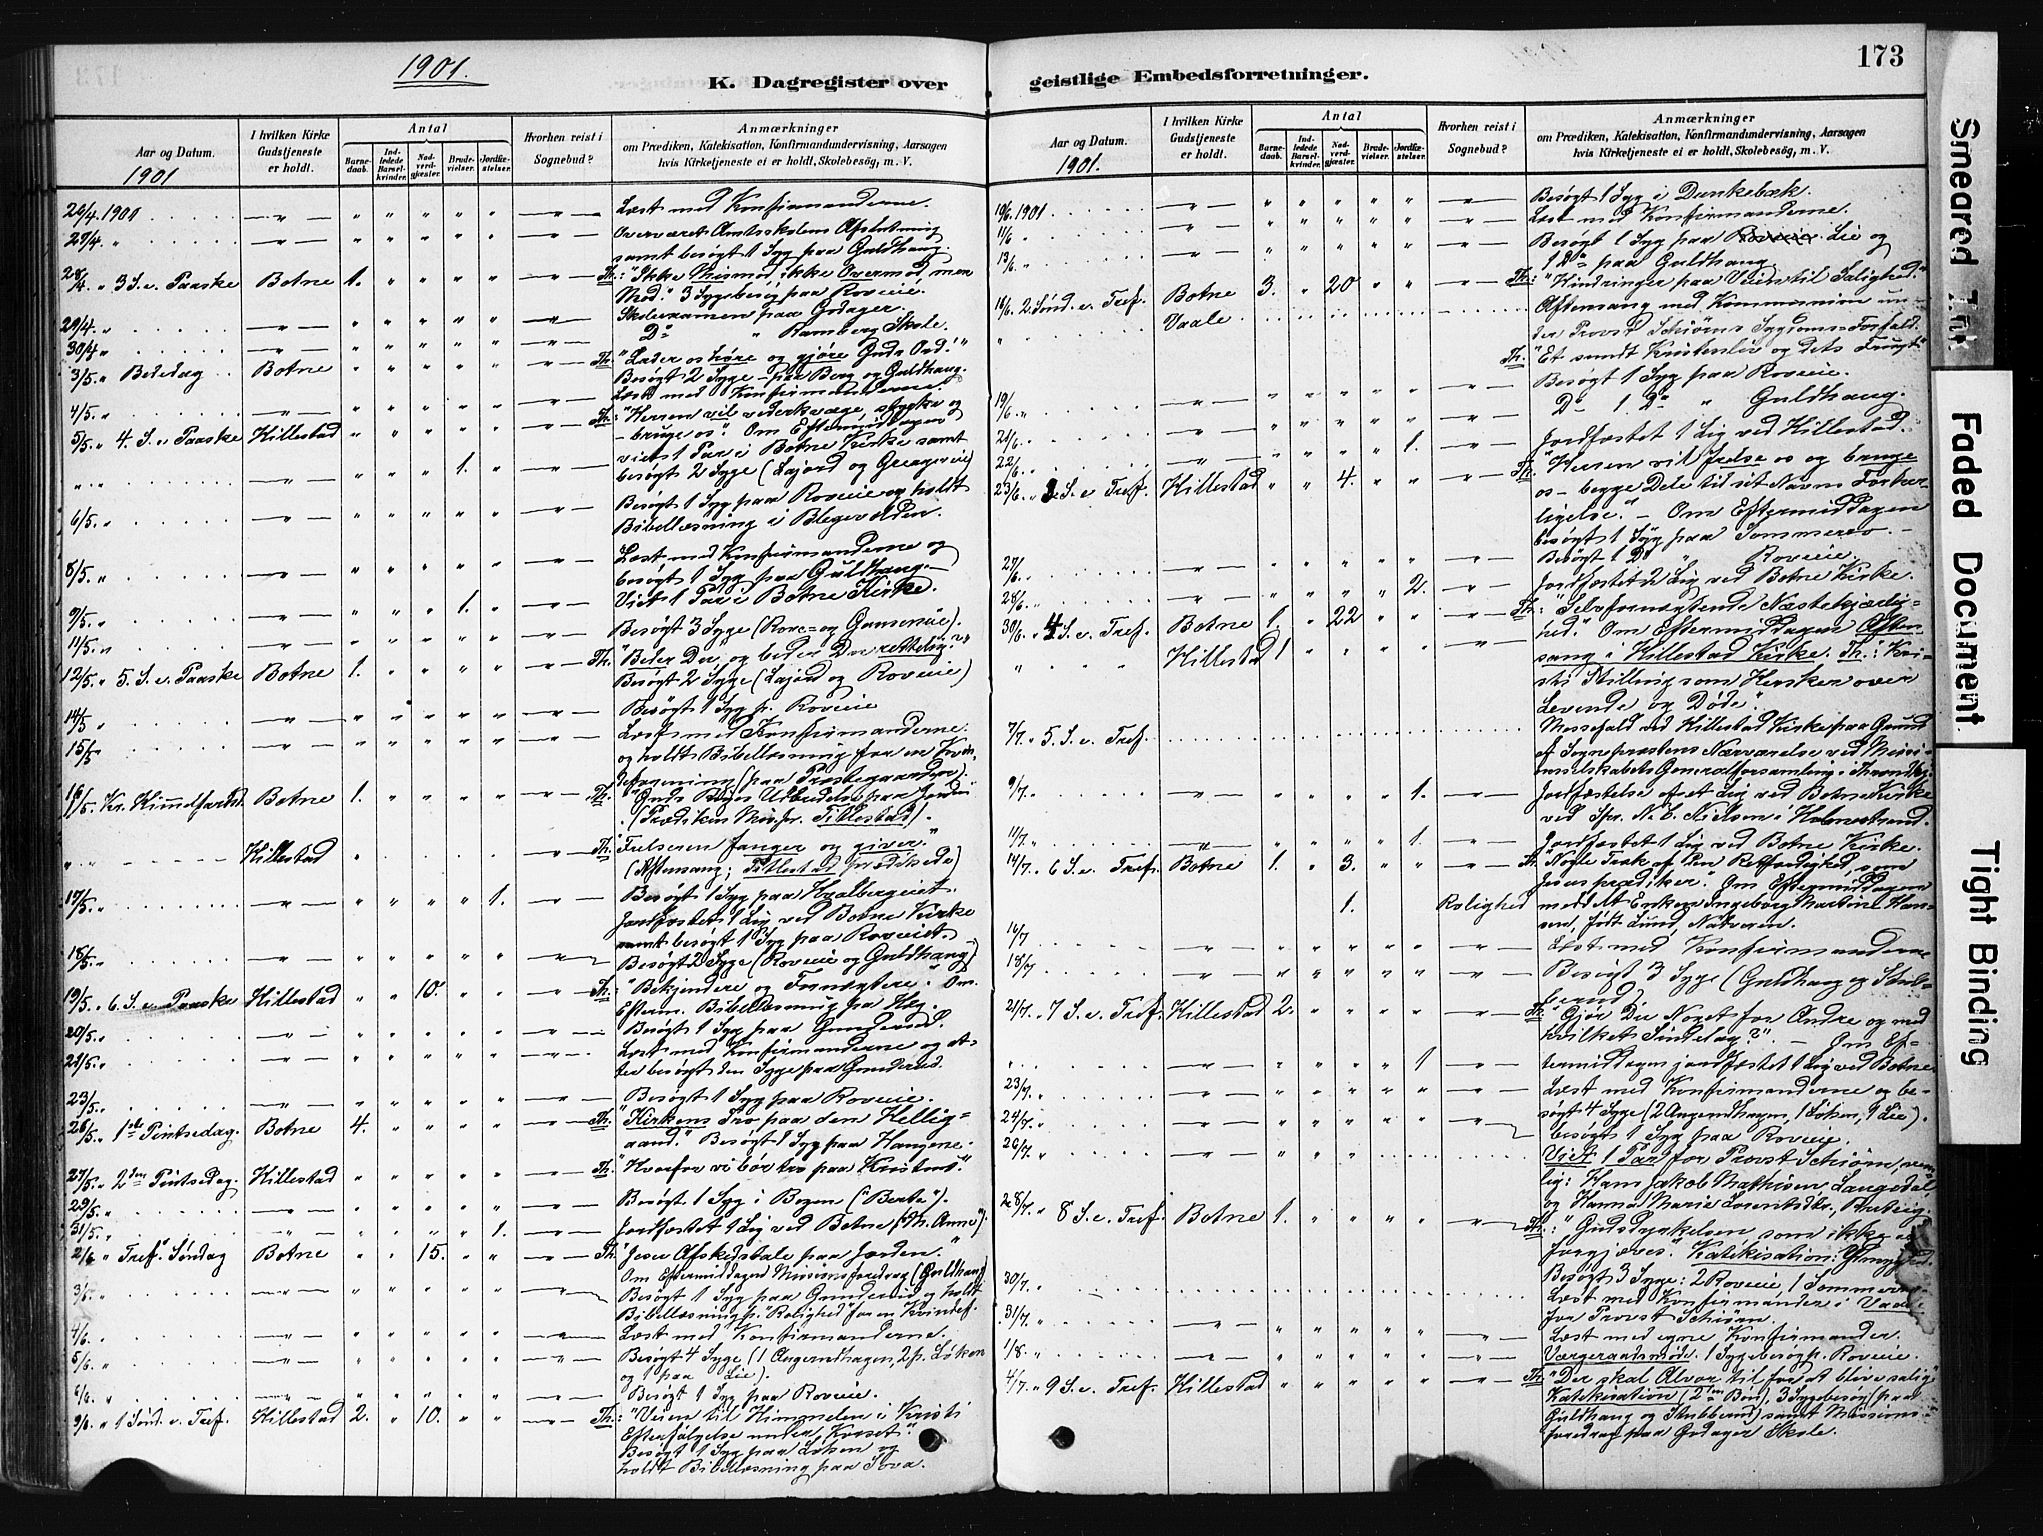 1901.
K. Dagregister over
Aar og Datum.
1901
I hvilken Kirke Gudstjeneste er holdt.
Antal
Barnedaab.
Indledede Barselkvinder.
Nadverdgjæster.
Brudevielser.
Jordfæstelser.
Hvorhen reist i Sognebud?
Anmærkninger
om Prædiken, Katekisation, Konfirmandundervisning, Aarsagen
hvis Kirketjeneste ei er holdt, Skolebesøg, m. V.
26/4. 1901 Læst med Konfirmanderne.
27/4 " Overværet Amtsskolens Afslutning
samt besøgt 1 Syg paa Guldhang.
28/4 " 3 S. e. Paaske Botne 1. Th: "Ikke Mismod, ikke Overmod, men
Mod." 3 Sygebesøg paa Roveie.
29/4. " Skoleexamen paa Gdager.
30/4 " Do " Ramberg Skole.
3/5. " Bededag Botne Th: "Lader os høre og gjøre Guds Ord!"
Besøgt 2 Syge - paa Berg og Guldhang.
4/5. " Læst med Konfirmanderne.
5/5. " 4. S. e. Paaske Killestad Th: "Herren vil vederkvæge, styrke og
- bruge os." Om Eftermiddagen
" " 1. viet 1 Par i Botne Kirke samt
besøgt 2 Syge (Lajord og Greageveie)
6/5. " Besøgt 1 Syg paa Roveie og holdt
Bibellæsning i Blegevolden.
8/5. " Læst med Konfirmanderne og
besøgt 1 Syg paa Guldhang.
9/5. " 1. Viet 1 Par i Botne Kirke.
11/5. " Besøgt 3 Syge (Rore= og Gausenveie).
12/5. " 5. S. e. Paaske Botne 1. Th: "Beder Du, og beder Du rettelig?"
Besøgt 2 Syge (Lajord og Roveie)
14/5 " Besøgt 1 Syg p. Roveie
15/5 " Læst med Konfirmanderne.
og holdt Bibellæsning for en Kvindeforening (paa Præstegaarden).
16/5. " Kr. Himmelfartsd. Botne 1. Th. "Guds Riges Udbredelse paa Jorden
(Prædiken Misspr. Tillestad).
" " Killestad Th: "Frelseren fanger og giver."
(Aftensang; Tillestad prædikede)
17/5. " 1. Besøgt 1 Syg paa Hvalbergeiet.
Jordfæstet 1 Lig ved Botne Kirke
samt besøgt 1 Syg paa Roveiet.
18/5. " Besøgt 2 Syge (Roveie og Guldhang)
19/5. " 6. S. e. Paaske Killestad 10. Th: "Bekjendere og Fornægtere." Om
Efterm. Bibellæsning paa Hög.
20/5. " Besøgt 1 Syg paa Gunderud.
21/5. " Læst med Konfirmanderne og atter besøgt den Syge paa Gunderud.
23/5. " Besøgt 1 Syg paa Roveie.
26/5. " 1ste Pintsedag. Botne 4. Th: "Kirkens Tro paa den Hellig=
aand." Besøgt 1 Syg paa Haugene.
27/5. " 2den Pintsedag. Killestad Th: "Hvorfor vi bør tro paa Kristus."
29/5. " Besøgt 1 Syg i Bogen ("Berte").
31/5. " 1. Jordfæstet 1 Lig ved Botne (M. Anne").
2/6 " Tref. Søndag Botne 15. Th: "Jesu Afskedstale paa Jorden."
Om Eftermiddagen Missionsforedrag (Guldhang)
3/6. " Besøgt 1 Syg paa Gunderud og holdt
Bibellæsning p. "Rolighed" for en Kvindef.
4/6. " Læst med Konfirmanderne.
5/6. " Besøgt 4 Syge (1 Angerndhagen, 2 p. Løken
og 1 paa Lie).
6/6. " Besøgt 1 Syg paa Roveie.
9/6. " 1 Sønd. e. Tref. Killestad 2. 10. Th: "Veien til Himmelen i Kristi
Efterfølgelse under Korset."
Besøgt 1 Syg paa Løken og
holdt Bibellæsning paa Sova.
173
geistlige Embedsforretninger.
Aar og Datum.
1901.
I hvilken Kirke Gudstjeneste er holdt.
Antal
Barnedaab.
Indledede Barselkvinder.
Nadverdgjæster.
Brudevielser.
Jordfæstelser.
Hvorhen reist i Sognebud?
Anmærkninger
om Prædiken, Katekisation, Konfirmandundervisning, Aarsagen
hvis Kirketjeneste ei er holdt, Skolebesøg, m. V.
10/6. 1901 Besøgt 1 Syg i Dunkebæk.
11/6 " Læst med Konfirmanderne.
13/6 " Besøgt 1 Syg paa Lie og
1 Do paa Guldhang.
16/6. 2 Sønd. e. Tref. Botne 3. 20 Th: "Hindringer paa Veien til Salighed."
Vaale Aftensang med Kommunion un-
der Provst Schiørns Sygdoms=Forfald.
Th: "Et sundt Kristenliv og dets Frugt"
Besøgt 1 Syg paa Roveie.
19/6. " Do 1 Do " Guldhang.
21/6. " 1. Jordfæstet 1 Lig ved Hillestad.
22/6. "
23/6. " 3 S. e. Tref. Killestad 4. Th: "Herren vil frelse os og bruge
os - begge Dele til sit Navns Forher-
ligelse." - Om Eftermiddagen
besøgt 1 Syg paa Sommerro -
27/6. " Besøgt 1 Do " Roveie.
28/6. " 2. Jordfæstet 2 Lig ved Botne Kirke.
30/6. " 4 S. e. Tref. Botne 1. 22 Th: "Selvfornægtende Næstekjærlig=
hed." Om Eftermiddagen Aften-
" Killestad 1 sang i Killestad Kirke. Th.: Kri-
sti Stilling som Hersker over
Levende og Døde."
7/7. " 5. S. e. Tref. Messefald ved Killestad Kirke paa Grund
af Sognepræstens Nærværelse ved Missi-
onsselskabets Generalforsamling i Throndhj.
9/7. " 1. Jordfæstelse af et Lig ved Botne Kirke
ved Spr. N. C. Nielsen i Holmestrand.
11/7. " 1. Jordfæstet 1 Lig ved Botne Kirke.
14/7. " 6 S. e. Tref. Botne 1. 3. Th. Nogle Træk af Den Retfærdighed, som
Jesus prædiker." Om Eftermiddagen
1. Rolighed meddelt Enken Ingeborg Martine Han-
sen, født Lund, Nadveren.
16/7 Læst med Konfirmanderne
18/7 Besøgt 3 Syge (Guldhang og Stub-
berud)
21/7. " 7 S. e. Tref. Killestad 2. Th: "Gjør Du Noget for Andre og med
hvilket Sindelag?" - Om Ef-
" 1 termiddagen jordfæstet 1 Lig ved Botne
23/7. " Læst med Konfirmanderne og be-
søgt 4 Syge (2 Angerndhagen, 1 Løken, 1 Lie).
24/7. " besøgt 1 Syg paa Roveie.
26/7. " Viet 1 Par for Provst Schiørn, nem-
lig: Hans Jakob Mathisen Langedal
og Hanna Marie Lorentsdtr.
28/7. " 8 S. e. Tref. Botne 1. Th: "Gudsdyrkelsen som ikke er
forgjæves." Katekisation:
Besøgt 3 Syge: 2 Roveie, 1 Sommerro.
30/7. " Læst med Konfirmander i Vaale
for Provst Schiørn.
31/7. " Læst med egne Konfirmander.
1/8. " Værgeraadsmøde. 1 Sygebesøg p. Roveie.
4/7. " 9 S. e. Tref. Killestad Th: "Der skal Alvor til for at blive salig"
Katekisation (2den Bøn), 3 Sygebesøg (paa
Guldhang og Stubberud) samt Missions-
foredrag paa Gdager Skole.
Smeared Ink
Faded Document
Tight Binding